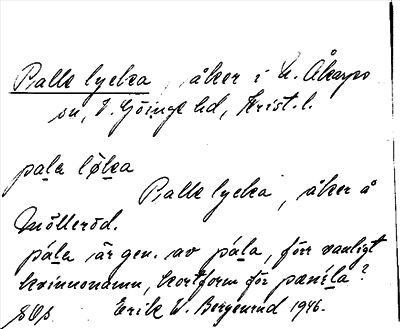 Palle lycka, åker i N. Åkarps
sn, V. Göinge hd, Krist. l.
pala løka
Palle lycka, åker å
Mölleröd.
pála är gen. av pála, förr vanligt
kvinnonamn, kortform för
Erik W. Bergenrud 1946.